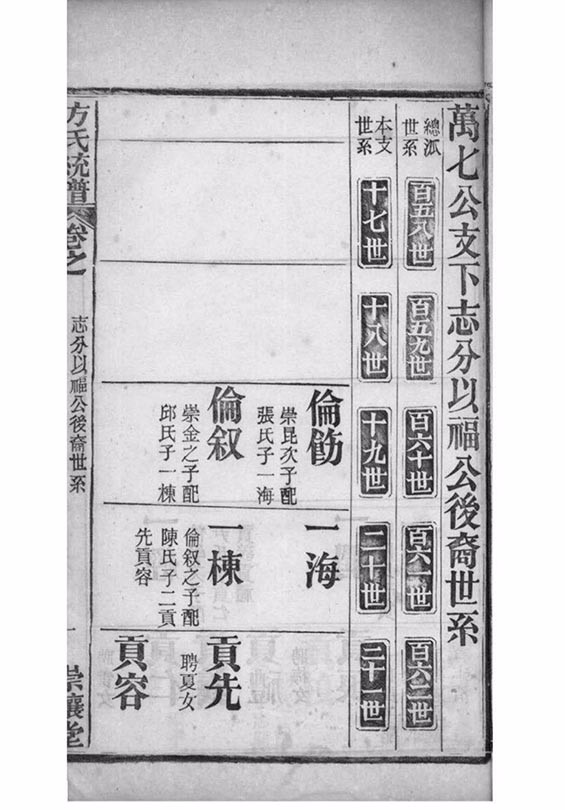 萬七公支下志分以福公後裔世系
總派世系
百五八世
百五九世
百六十世
百六一世
百六二世
本支世系
十七世
十八世
十九世
二十世
二十一世
倫飭
崇昆次子配
張氏子一海
一海
倫叙
崇金之子配
邱氏子一棟
一棟
倫叙之子配
陳氏子二貢
先貢容
貢先
聘夏女
貢容
方氏統譜
卷之
志分以福公後裔世系
一
崇讓堂